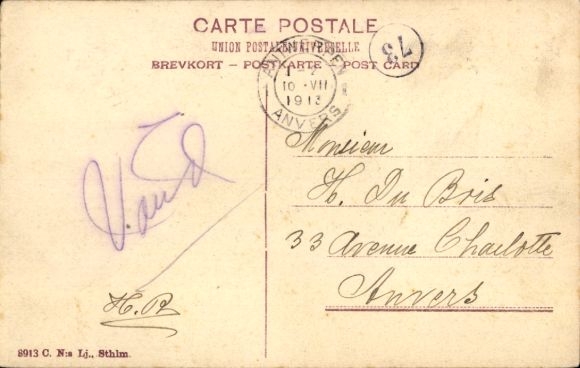 CARTE POSTALE
UNION POSTALE UNIVERSELLE
BREVKORT – POSTKARTE – POST CARD
ANTWERPEN
10 VII
1913
ANVERS
Monsieur
H. Du Bris
33 Avenue Charlotte
Anvers
H. R
8913 C. N:s Lj., Sthlm.